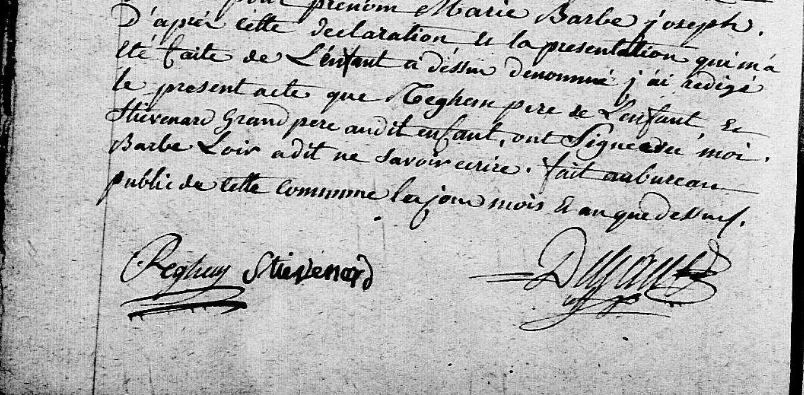 pour prénom Marie Barbe joseph.
D'après cette declaration et la presentation qui m'a
été faite de L'enfant a déssus denommé j'ai redigé
le present acte que Reghem pere de L'enfant, et
Stievenard Grand pere audit enfant, ont Signé avec moi.
Barbe Loir a dit ne savoir ecrire. fait au bureau
public de cette commune les jour mois et an que dessus.
Reghem Stievenard